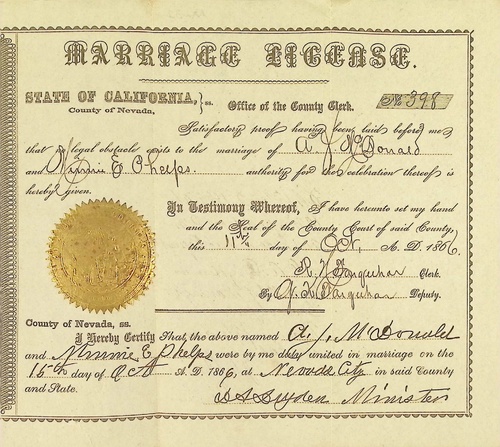 MARRIAGE LICENSE.
STATE OF CALIFORNIA, } ss. Office of the County Clerk. No 398
County of Nevada,
Satisfactory proof having been laid before me
that no legal obstacle exists to the marriage of A. J. McDonald
and Minnie E Phelps. authority for the celebration thereof is
hereby given.
In Testimony Whereof, I have hereunto set my hand
and the Seal of the County Court of said County,
this 11th day of Oct, A. D. 1866.
R. H. Farquhar Clerk.
By Farquhar Deputy.
County of Nevada, ss.
I Hereby Certify That the above named A. J. McDonald
and Minnie E Phelps were by me duly united in marriage on the
15th day of Oct A. D. 1866, at Nevada City in said County
and State.
Dryden Minister